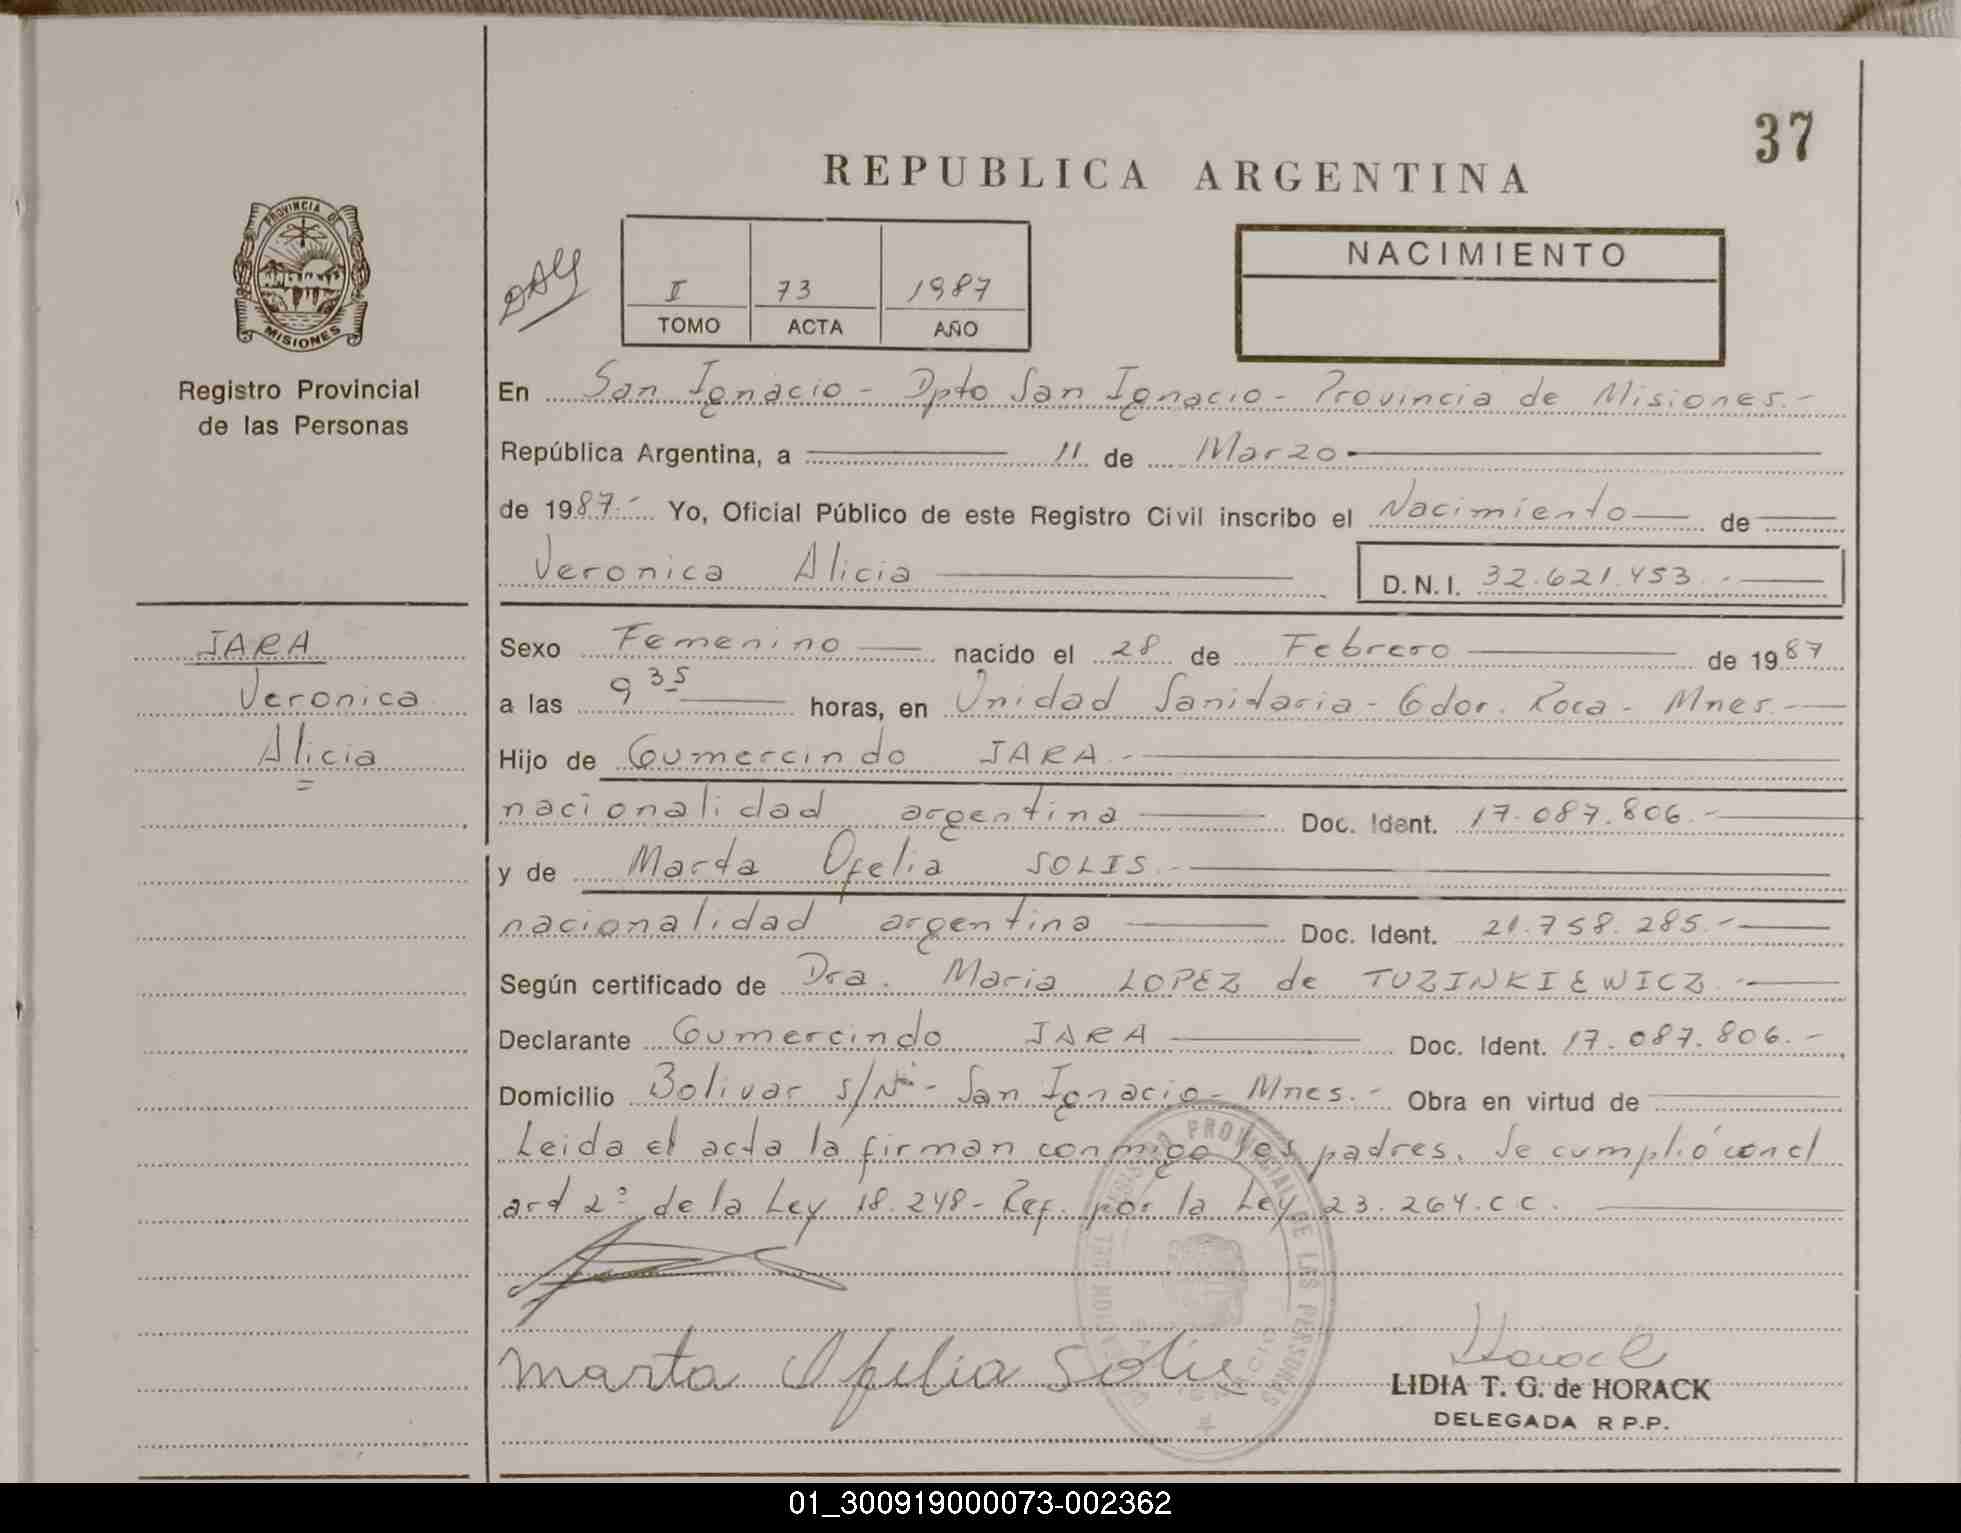 37
REPUBLICA ARGENTINA
PROVINCIA DE
MISIONES
Registro Provincial
de las Personas
I 73 1987
TOMO ACTA AÑO
NACIMIENTO
En San Ignacio - Dpto San Ignacio - Provincia de Misiones.-
República Argentina, a 11 de Marzo
de 1987.- Yo, Oficial Público de este Registro Civil inscribo el Nacimiento de
Veronica Alicia
D.N.I. 32.621.453.-
JARA
Veronica
Alicia
Sexo Femenino nacido el 28 de Febrero de 1987
a las 9 35 horas, en Unidad Sanitaria - Gdor. Roca - Mnes.-
Hijo de Gumercindo JARA.-
nacionalidad argentina Doc. Ident. 17.087.806.-
y de Marta Ofelia SOLIS.-
nacionalidad argentina Doc. Ident. 21.758.285.-
Según certificado de Dra. Maria LOPEZ de TUZINKIEWICZ.-
Declarante Gumercindo JARA Doc. Ident. 17.087.806.-
Domicilio Bolivar s/Nº - San Ignacio - Mnes.- Obra en virtud de
Leida el acta la firman conmigo los padres. Se cumplió con el
art 2º de la Ley 18.248 - Ref. por la Ley 23.264.C C.
REGISTRO PROVINCIAL DE LAS PERSONAS
Marta Ofelia Solis
LIDIA T. G. de HORACK
DELEGADA R P.P.
01_300919000073-002362